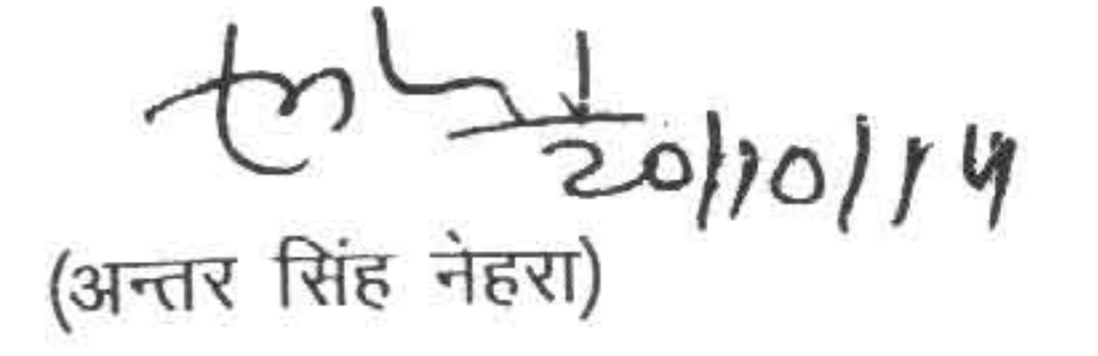 20/10/14
(अन्तर सिंह नेहरा)